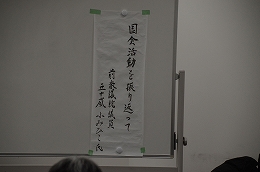 国会活動を振り返って
前衆議院議員
五十嵐ふみひこ氏